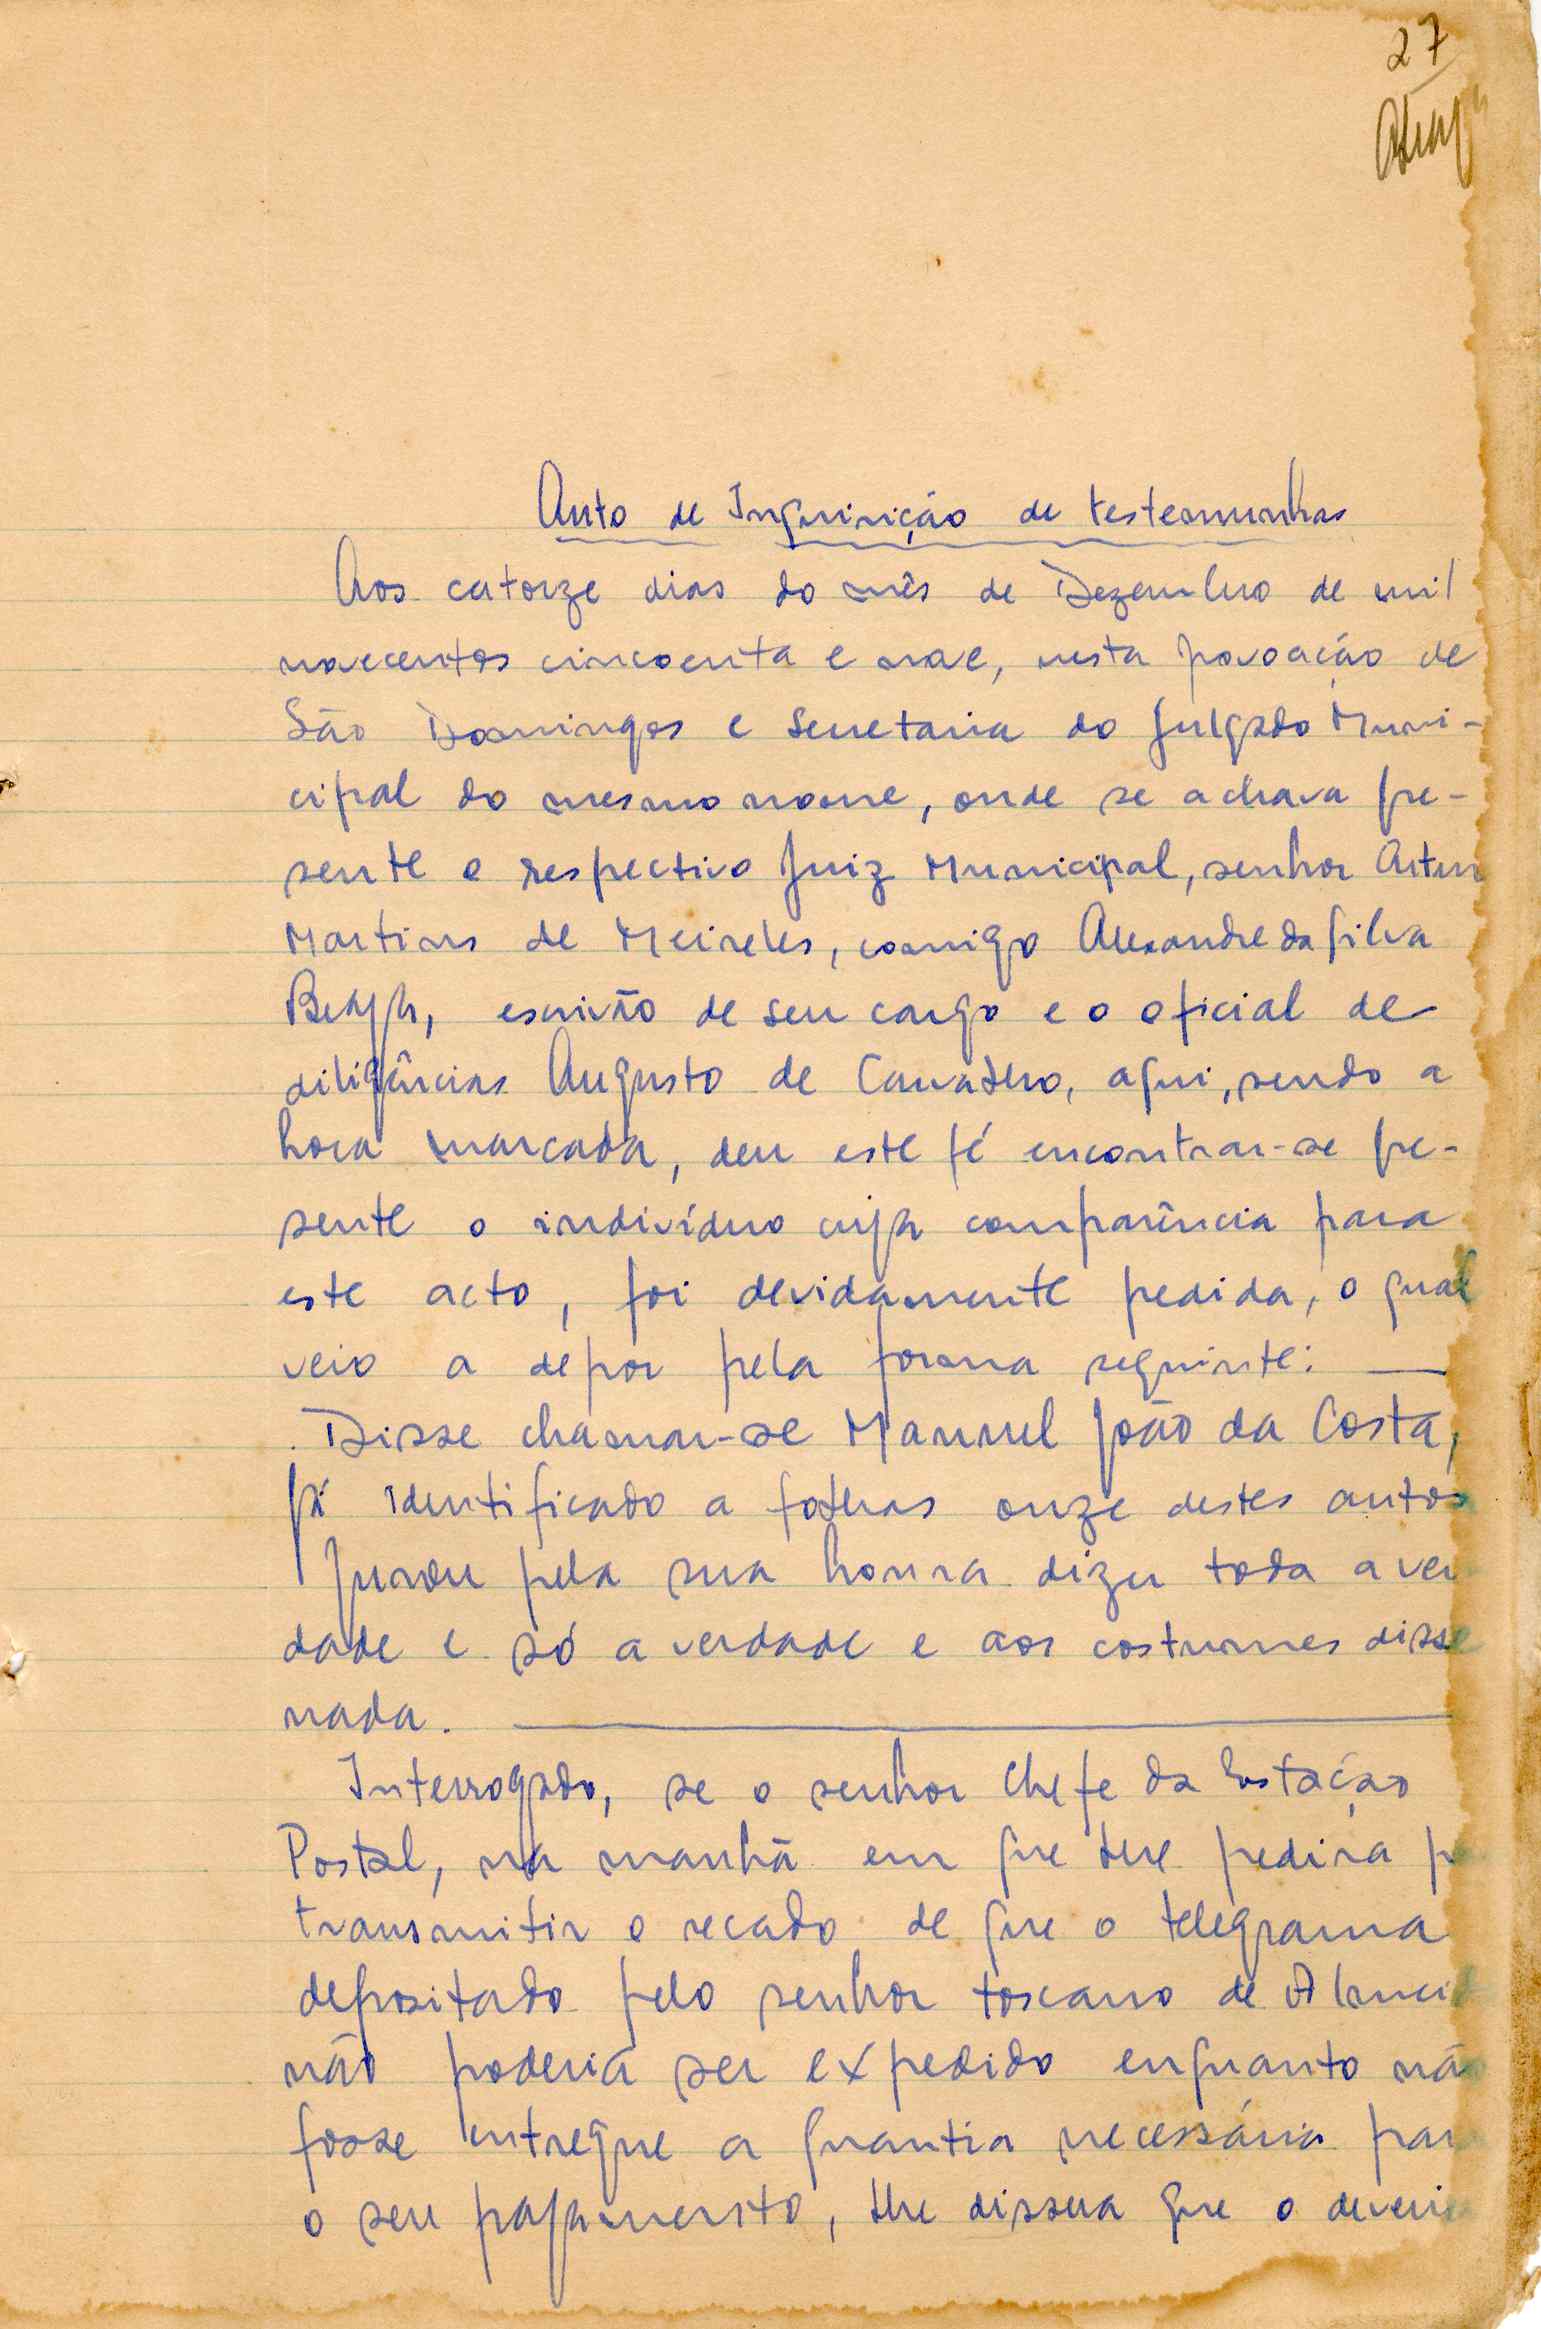 27
Auto de Inquirição de testemunhas
Aos catorze dias do mês de Dezembro de mil
novecentos cincoenta e nove, nesta povoação de
São Domingos e Secretaria do Julgado Muni-
cipal do mesmo nome, onde se achava pre-
sente o respectivo Juiz Municipal, senhor Artur
Martins de Meireles, comigo Alexandre da Silva
escrivão de seu cargo e o oficial de
diligências Augusto de Carvalho, aqui, sendo a
hora marcada, deu este fé encontrar-se pre-
sente o indivíduo cuja comparência para
este acto, foi devidamente pedida, o qual
veio a depor pela forma seguinte:
Disse chamar-se Manuel João da Costa,
já identificado a folhas onze destes autos
Jurou pela sua honra dizer toda a ver
dade e só a verdade e aos costumes disse
nada.
Interrogado, se o senhor Chefe da Estação
Postal, na manhã em que lhe pedira
transmitir o recado de que o telegrama
depositado pelo senhor Toscano de Almeid
não poderia ser expedido enquanto não
fosse entregue a quantia necessária para
o seu pagamento, lhe dissera que o deveria